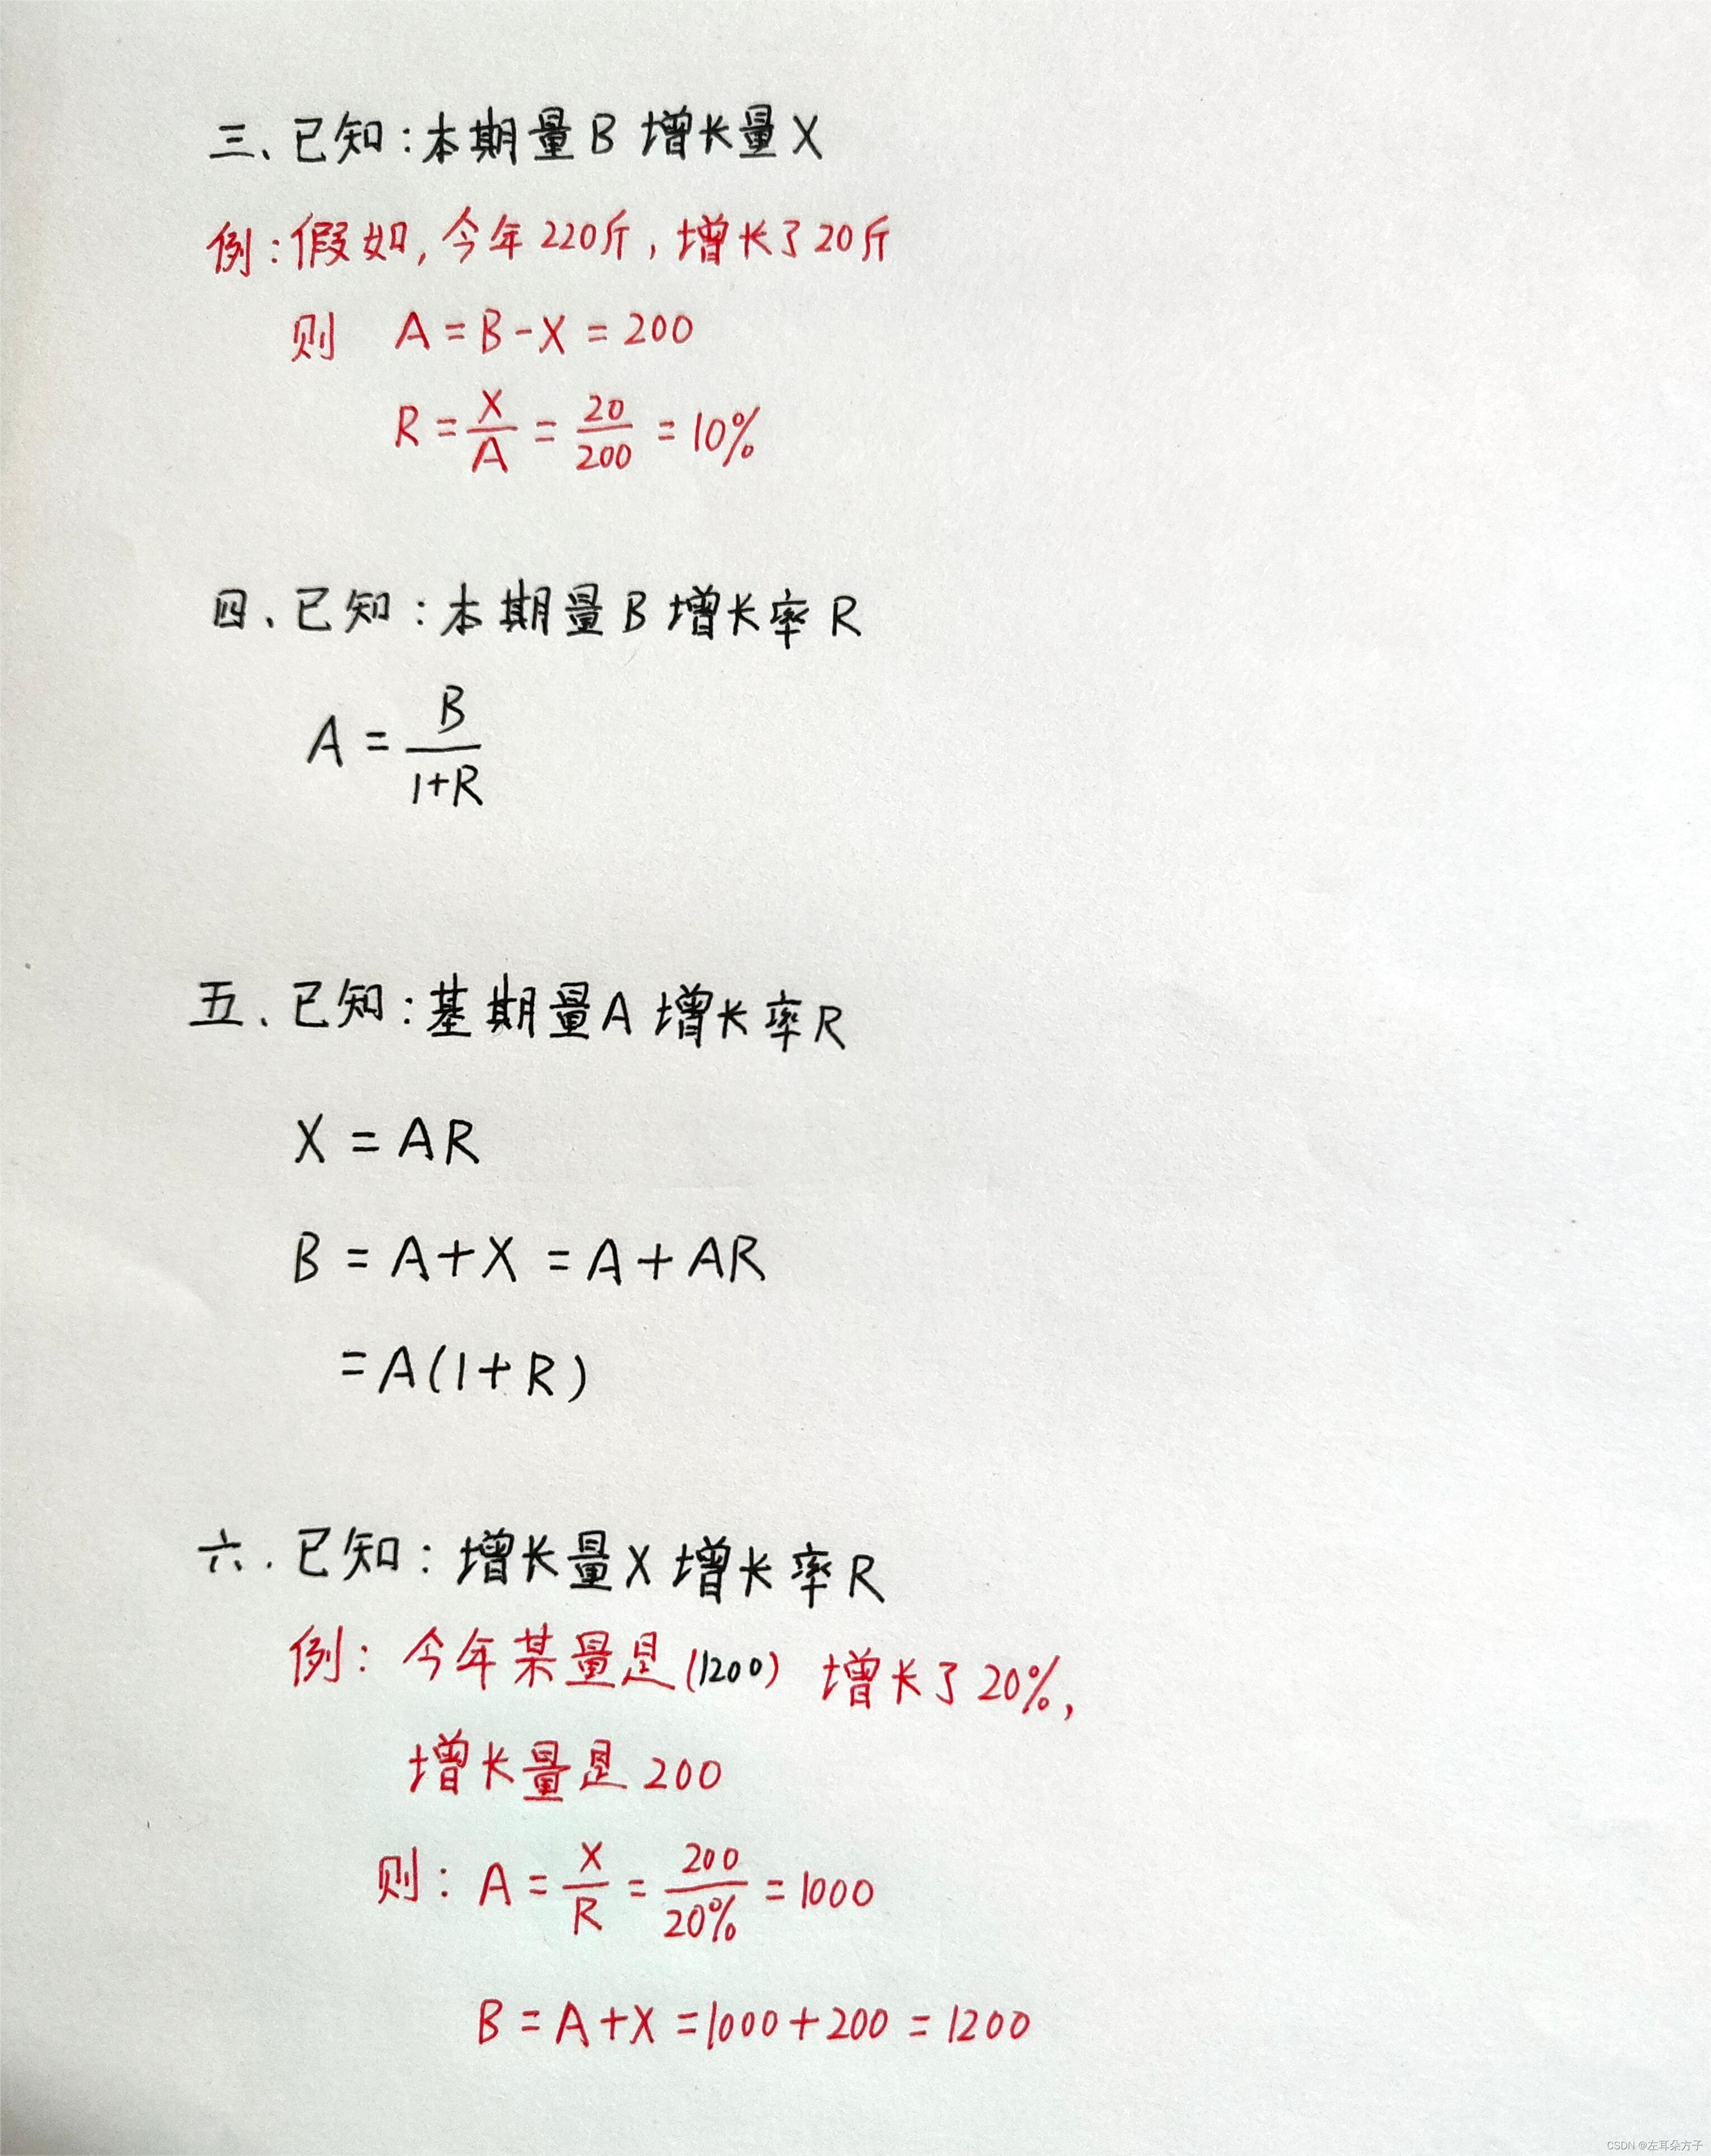 三、已知:本期量B 增长量X
例:假如,今年220斤,增长了20斤
则 A=B-X=200
R=X/A=20/200=10%
四、已知:本期量B增长率R
A=B/1+R
五、已知:基期量A增长率R
X=AR
B=A+X=A+AR
=A(1+R)
六.已知:增长量X增长率R
例:今年某量是(1200) 增长了20%,
增长量是200
则:A=X/R=200/20%=1000
B=A+X=1000+200=1200
CSDN @左耳朵方子